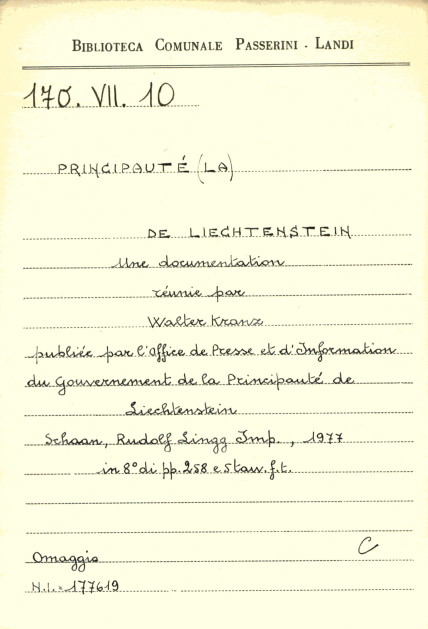 BIBLIOTECA COMUNALE PASSERINI - LANDI
170. VII. 10
PRINCIPAUTÉ (LA)
DE LIECHTENSTEIN
Une documentation
réunie par
Walter Kranz
publiée par l'Office de Presse et d'Information
du Gouvernement de la Principauté de
Liechtenstein
Schaan, Rudolf Lingg Imp., 1977
in 8° di pp. 258 e 5 tav. f.t.
C
Omaggio
N.I. = 177619